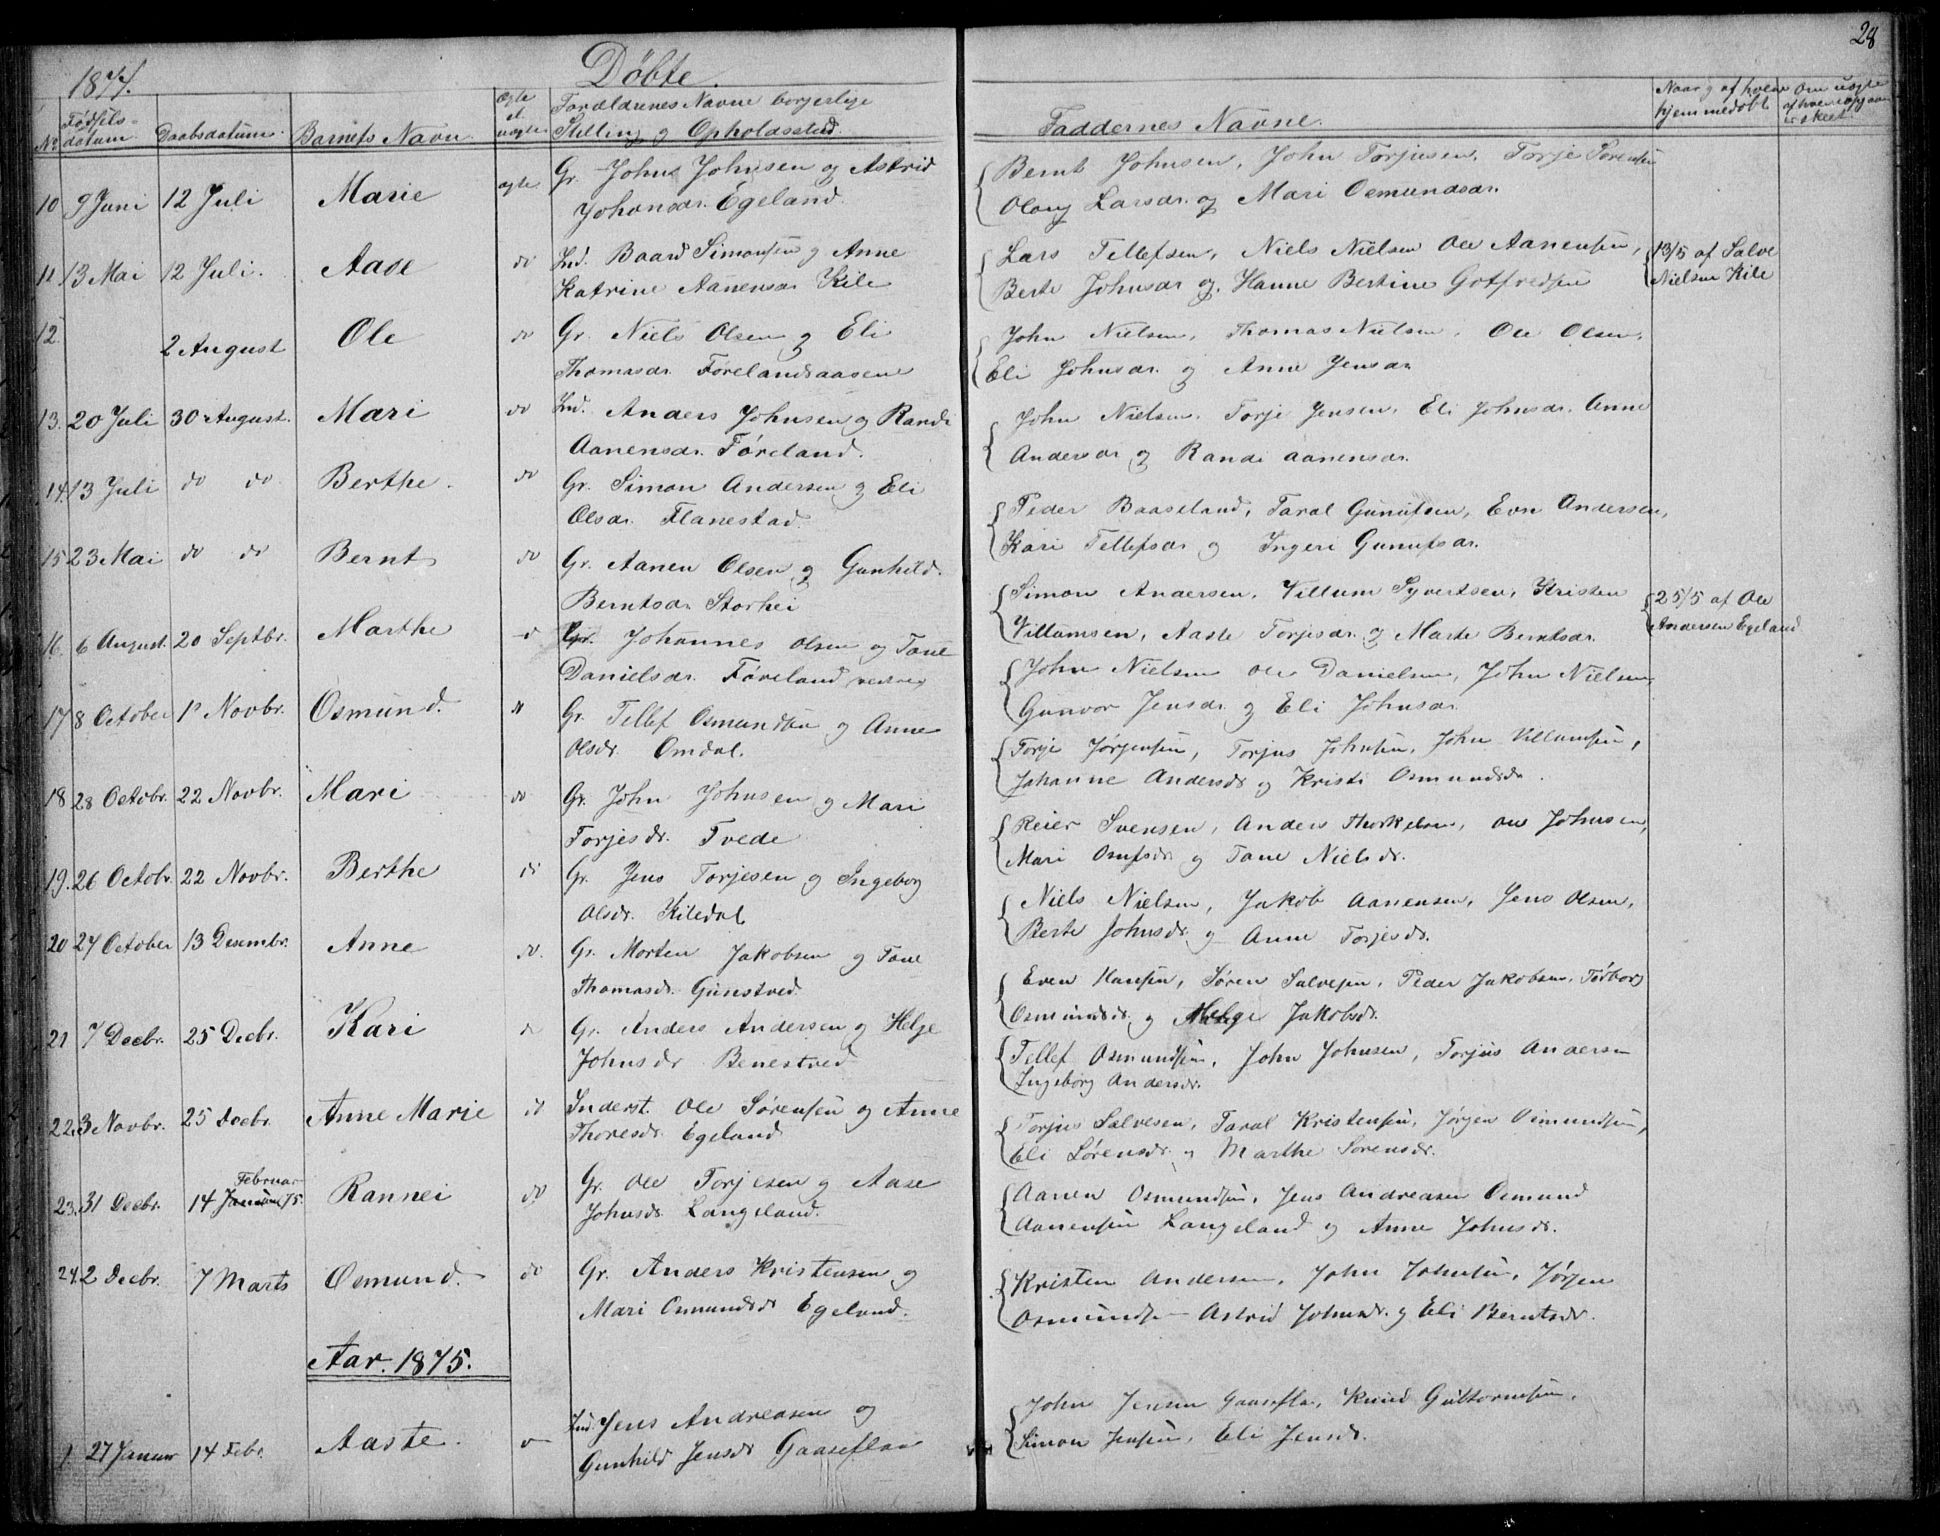 28
1874.
Döbte.
No
Födsels-
datum
Daabsdatum.
Barnets Navn.
Ægte
el.
uægte
Forældrenes Navne borgerlige
Stilling og Opholdssted.
Faddernes Navne.
Naar og af hvem
hjemmedøbt
Om uægte
10 9 Juni 12 Juli Marie ægte Gr. John Johnsen og Astrid
Johansdr. Egeland.
Bernt Johnsen, John Torjusen, Torje Sørensen
Olaug Larsdr. og Mari Osmundsdr.
11 13 Mai 12 Juli. Aase do Ind. Baard Simonsen og Anne
Katrine Aanensdr Kile
Lars Tellefsen, Niels Nielsen Ole Aanensen,
Berte Johnsdr og Hanne Bertine Gotfredsen
13/5 af Salve
Nielsen Kile
12. 2 August Ole do Gr. Niels Olsen og Eli
Thomasdr. Førelandsaasene
John Nielsen, Thomas Nielsen, Ole Olsen,
Eli Johnsdr. og Anne Jensdr
13. 20 Juli 30 August. Mari do Ind. Anders Johnsen og Randi
Aanensdr. Føreland.
John Nielsen, Torje Jensen, Eli Johnsdr. Anne
Andersdr og Randi Aanensdr.
14. 13 Juli do do Berthe. do Gr. Simon Andersen og Eli
Olsdr. Flanestad.
Peder Baaseland, Taral Gunufsen, Even Andersen,
Kari Tellefsdr og Ingeri Gunufsdr.
15 23 Mai do do Bernt do Gr. Aanen Olsen og Gunhild
Berntsdr Storhei
Simon Andersen, Villum Syvertsen, Kristen
Villumsen, Aaste Torjisdr. og Marte Berntsdr.
25/5 af Ole
Andersen Egeland
16. 6 August. 20 Septbr. Marthe d Gr. Johannes Olsen og Tone
Danielsdr. Føreland
John Nielsen Ole Danielsen, John Nielsen
Gunvor Jensdr og Eli Johnsdr
17 8 October 1 Novbr. Osmund. Gr. Tellef Osmundsen og Anne
Olsdr. Omdal.
Torje Jørgensen, Torjus Johnsen, John Villumsen,
Johanne Andersdr og Kristi Osmundsdr.
18 28 Octobr. 22 Novbr. Mari do Gr. John Johnsen og Mari
Torjesdr. Tvede
Reier Svensen, Anders Thorkelsen, Ole Johnsen,
Mari Osufsdr og Tone Nielsdr.
19. 26 Octobr. 22 Novbr. Berthe do Gr. Jens Torjesen og Ingeborg
Olsdr. Kiledal
Niels Nielsen, Jakob Aanensen, Jens Olsen,
Berte Johnsdr. og Anne Torjesdr.
20 24 October 13 Desembr. Anne do. Gr. Morten Jakobsen og Tone
Thomasdr. Günstved.
Even Hansen, Søren Salvesen, Peder Jakobsen, Torborg
Osmundsdr og Helge Jakobsdr.
21 7 Decbr. 25 Decbr. Kari do Gr. Anders Andersen og Helge
Johnsdr Benestved
Tellef Osmundsen, John Johnsen, Torjus Andersen
Ingeborg Andersdr.
22. 3 Novbr. 25 Decbr. Anne Marie do Inderst. Ole Sørensen og Anne
Thoresdr. Egeland
Torjus Salvesen, Taral Kristensen, Jørgen Osmundsen,
Eli Sørensdr. og Marthe Sørensdr.
23. 31 Decbr. 14 Januar Februar 75. Rannei do Gr. Ole Torjesen og Aase
Johnsdr. Langeland.
Aanen Osmundsen, Jens Andreasen Osmund
Aanensen Langeland og Anne Johnsdr.
24. 2 Decbr. 7 Marts Osmund. do Gr. Anders Kristensen og
Mari Osmundsdr Egeland.
Kristen Andersen, John Johnsen, Jørgen
Osmundsen Astrid Johnsdr. og Eli Berntsdr.
Aar. 1875.
1. 27 Januar 14 Febr. Aaste. Ind. Jens Andreasen og
Gunhild Jensdr Gaaseflaa
John Jensen Gaasefla, Knud Guttormsen,
Simon Jensen, Eli Jensdr.